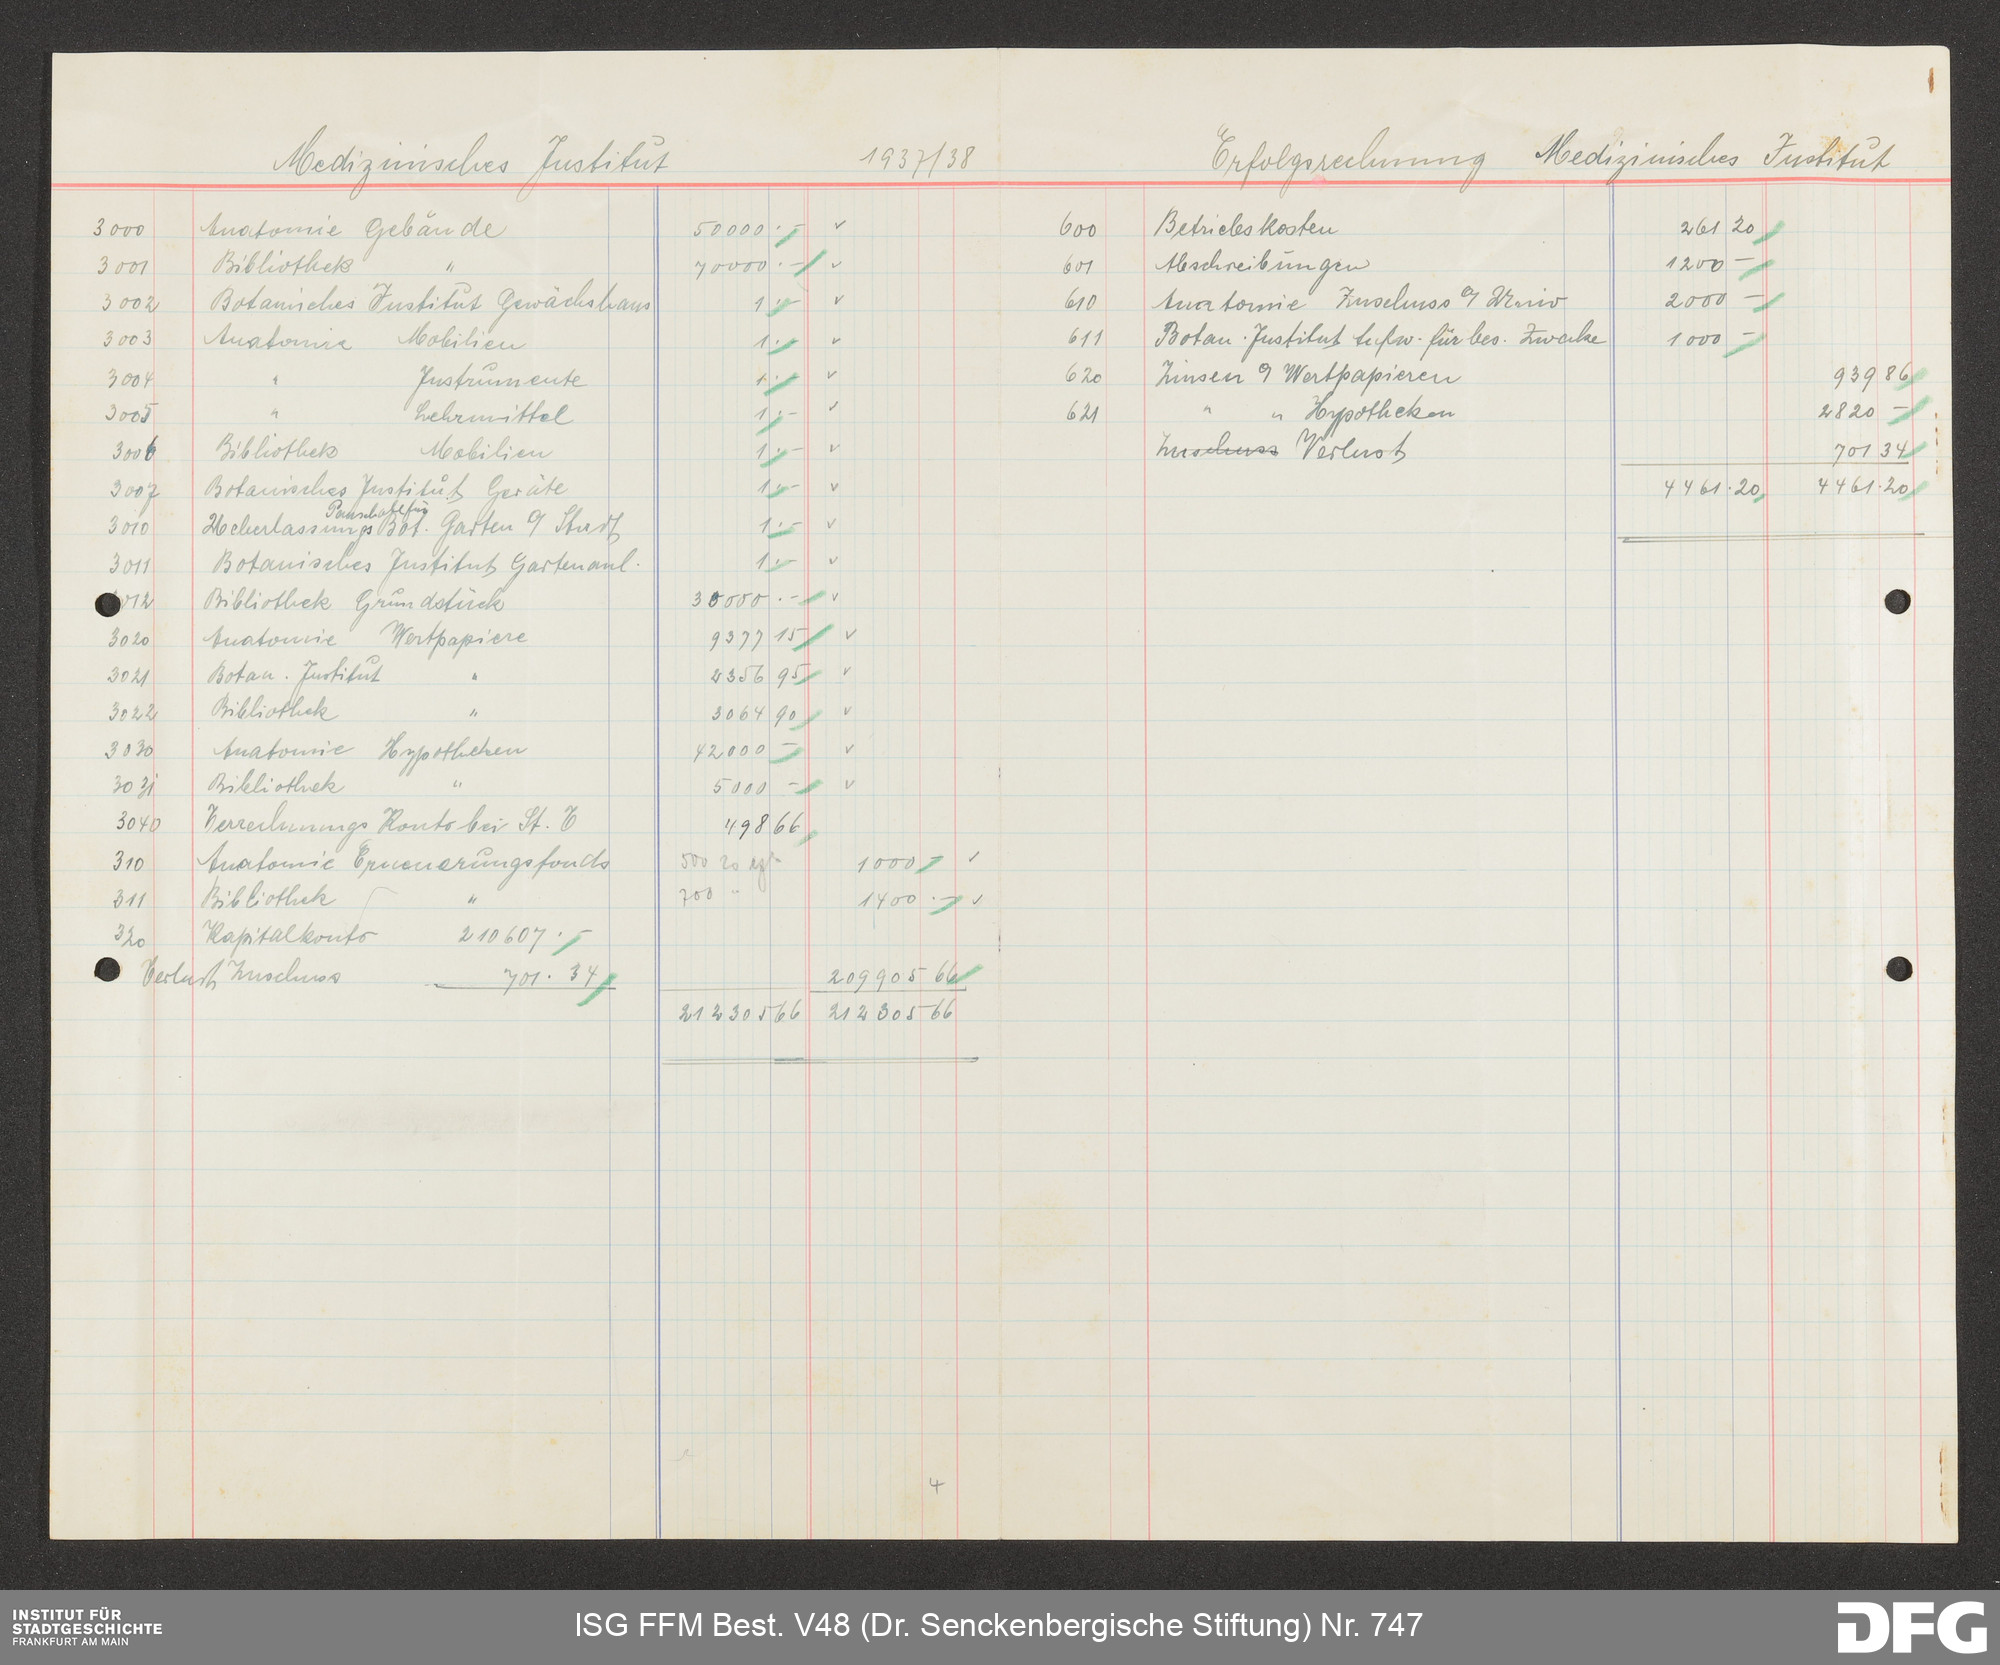 Medizinisches Institut 1937/38
3000 Anatomie Gebäude 50000.- ✓
3001 Bibliothek " 70000.- ✓
3002 Botanisches Institut Gewächshaus 1.- ✓
3003 Anatomie Mobilien 1.- ✓
3004 " Instrumente 1.- ✓
3005 " Lehrmittel 1.- ✓
3006 Bibliothek Mobilien 1.- ✓
3007 Botanisches Institut Geräte 1.- ✓
Pauschale für
3010 Ueberlassungs Bot. Garten a/ Stadt 1.- ✓
3011 Botanisches Institut Gartenanl. 1.- ✓
3012 Bibliothek Grundstück 30000.- ✓
3020 Anatomie Wertpapiere 9377 15 ✓
3021 Botan. Institut " 2356 95 ✓
3022 Bibliothek " 3064 90 ✓
3030 Anatomie Hypotheken 42000 - ✓
3031 Bibliothek " 5000 - ✓
3040 Verrechnungs Konto bei St. C 498 66
310 Anatomie Erneuerungsfonds 500 1000 - ✓
311 Bibliothek " 700 " 1400.- ✓
320 Kapitalkonto 210607.-
Verlust Zuschuss 701.34 209905 66
212305 66 212305 66
4
Erfolgsrechnung Medizinisches Institut
600 Betriebskosten 261 20
601 Abschreibungen 1200 -
610 Anatomie Zuschuss a/ Univ 2000 -
611 Botan. Institut für bes. Zwecke 1000 -
620 Zinsen a/ Wertpapieren 939 86
621 " " Hypotheken 2820 -
Zuschuss Verlust 701 34
4461.20 4461.20
INSTITUT FÜR
STADTGESCHICHTE
FRANKFURT AM MAIN
ISG FFM Best. V48 (Dr. Senckenbergische Stiftung) Nr. 747
DFG